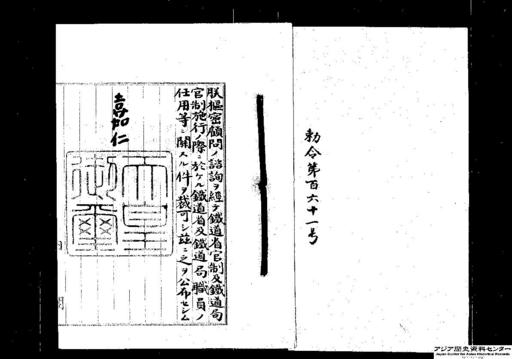 勅令第百六十一号
朕樞密顧問ノ諮詢ヲ經テ鐵道省官制及鐵道局
官制施行ノ際ニ於ケル鐵道省及鐵道局職員ノ
任用等ニ關スル件ヲ裁可シ茲ニ之ヲ公布セシム
嘉仁
天皇
御璽
アジア歴史資料センター
Japan Center for Asian Historical Records